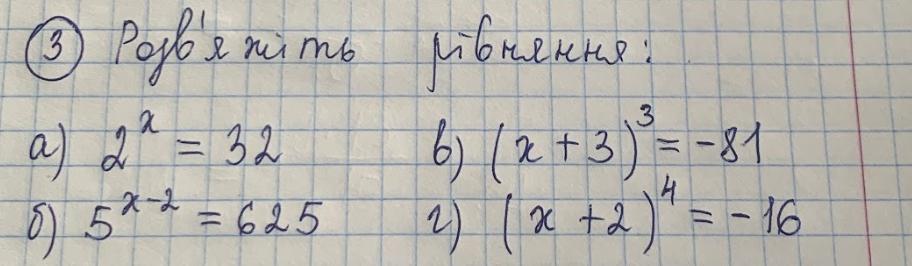 ③ Розв'яжіть рівняння:
а) 2^x = 32 в) (x + 3)^3 = -81
б) 5^{x-2} = 625 г) (x + 2)^4 = -16